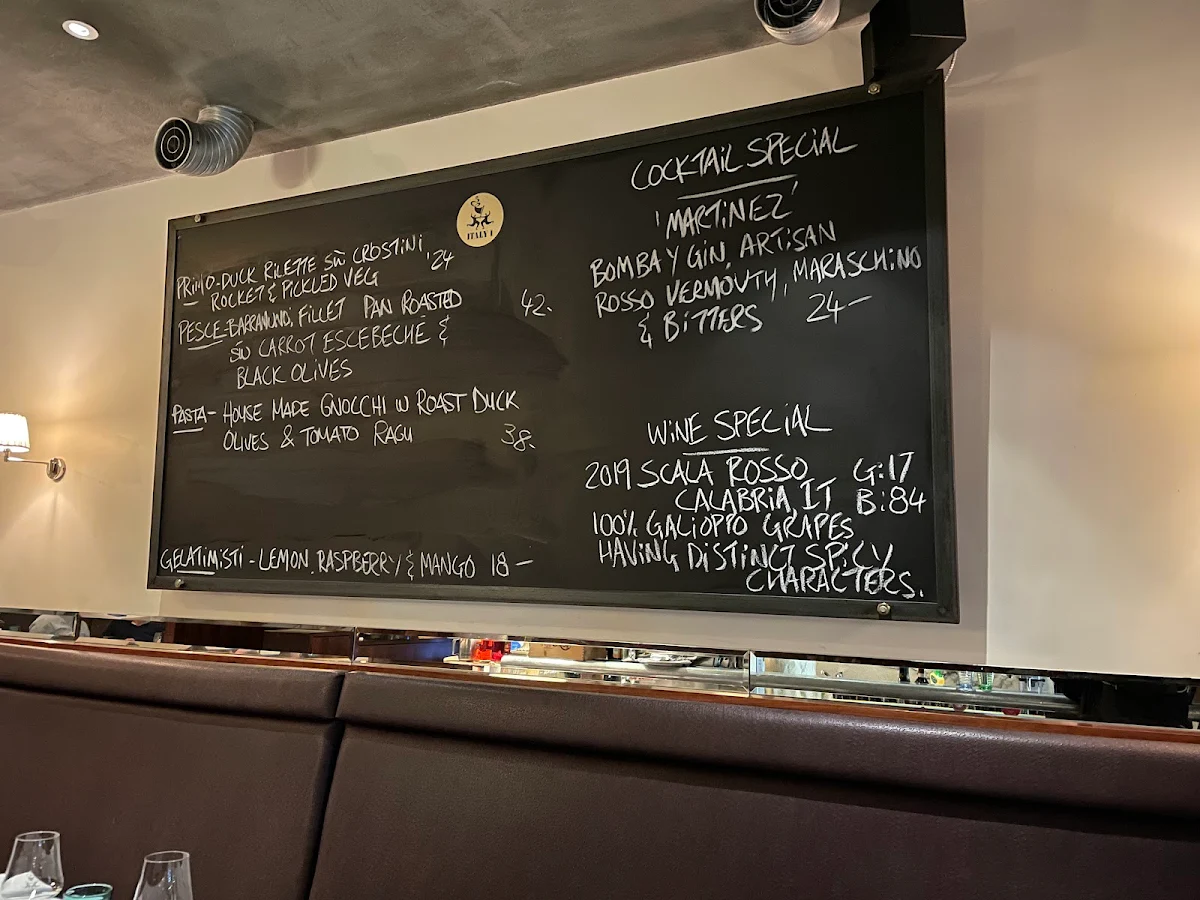 PRIMO-DUCK RILETTE S/W CROSTINI '24
ROCKET & PICKLED VEG
PESCE-BARRAMUNDI, FILLET PAN ROASTED 42.
S/W CARROT ESCEBECHE &
BLACK OLIVES
PASTA- HOUSE MADE GNOCCHI W ROAST DUCK
OLIVES & TOMATO RAGU 38.
GELATIMISTI - LEMON. RASPBERRY & MANGO 18-
ITALY 1
COCKTAIL SPECIAL
'MARTINEZ'
BOMBAY GIN, ARTISAN
ROSSO VERMOUTH, MARASCHINO
& BITTERS 24-
WINE SPECIAL
2019 SCALA ROSSO G:17
CALABRIA IT B:84
100% GALIOPPO GRAPES
HAVING DISTINCT SPICY
CHARACTERS.